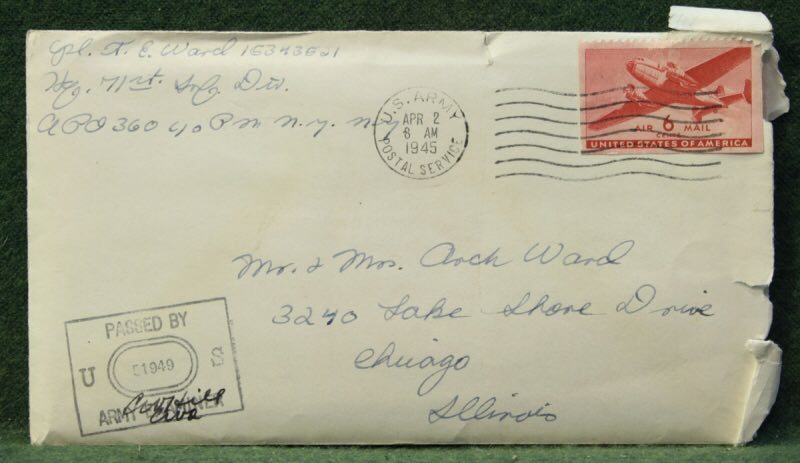 Cpl. T. E. Ward 15343521
Hq. 71st. Inf. Div.
APO 360 c/o P.M. N.Y. N.Y.
U.S. ARMY
APR 2
8 AM
1945
POSTAL SERVICE
AIR 6 MAIL
CENTS
UNITED STATES OF AMERICA
Mr. & Mrs. Arch Ward
3240 Lake Shore Drive
Chicago
Illinois
PASSED BY
U S
51949
ARMY EXAMINER